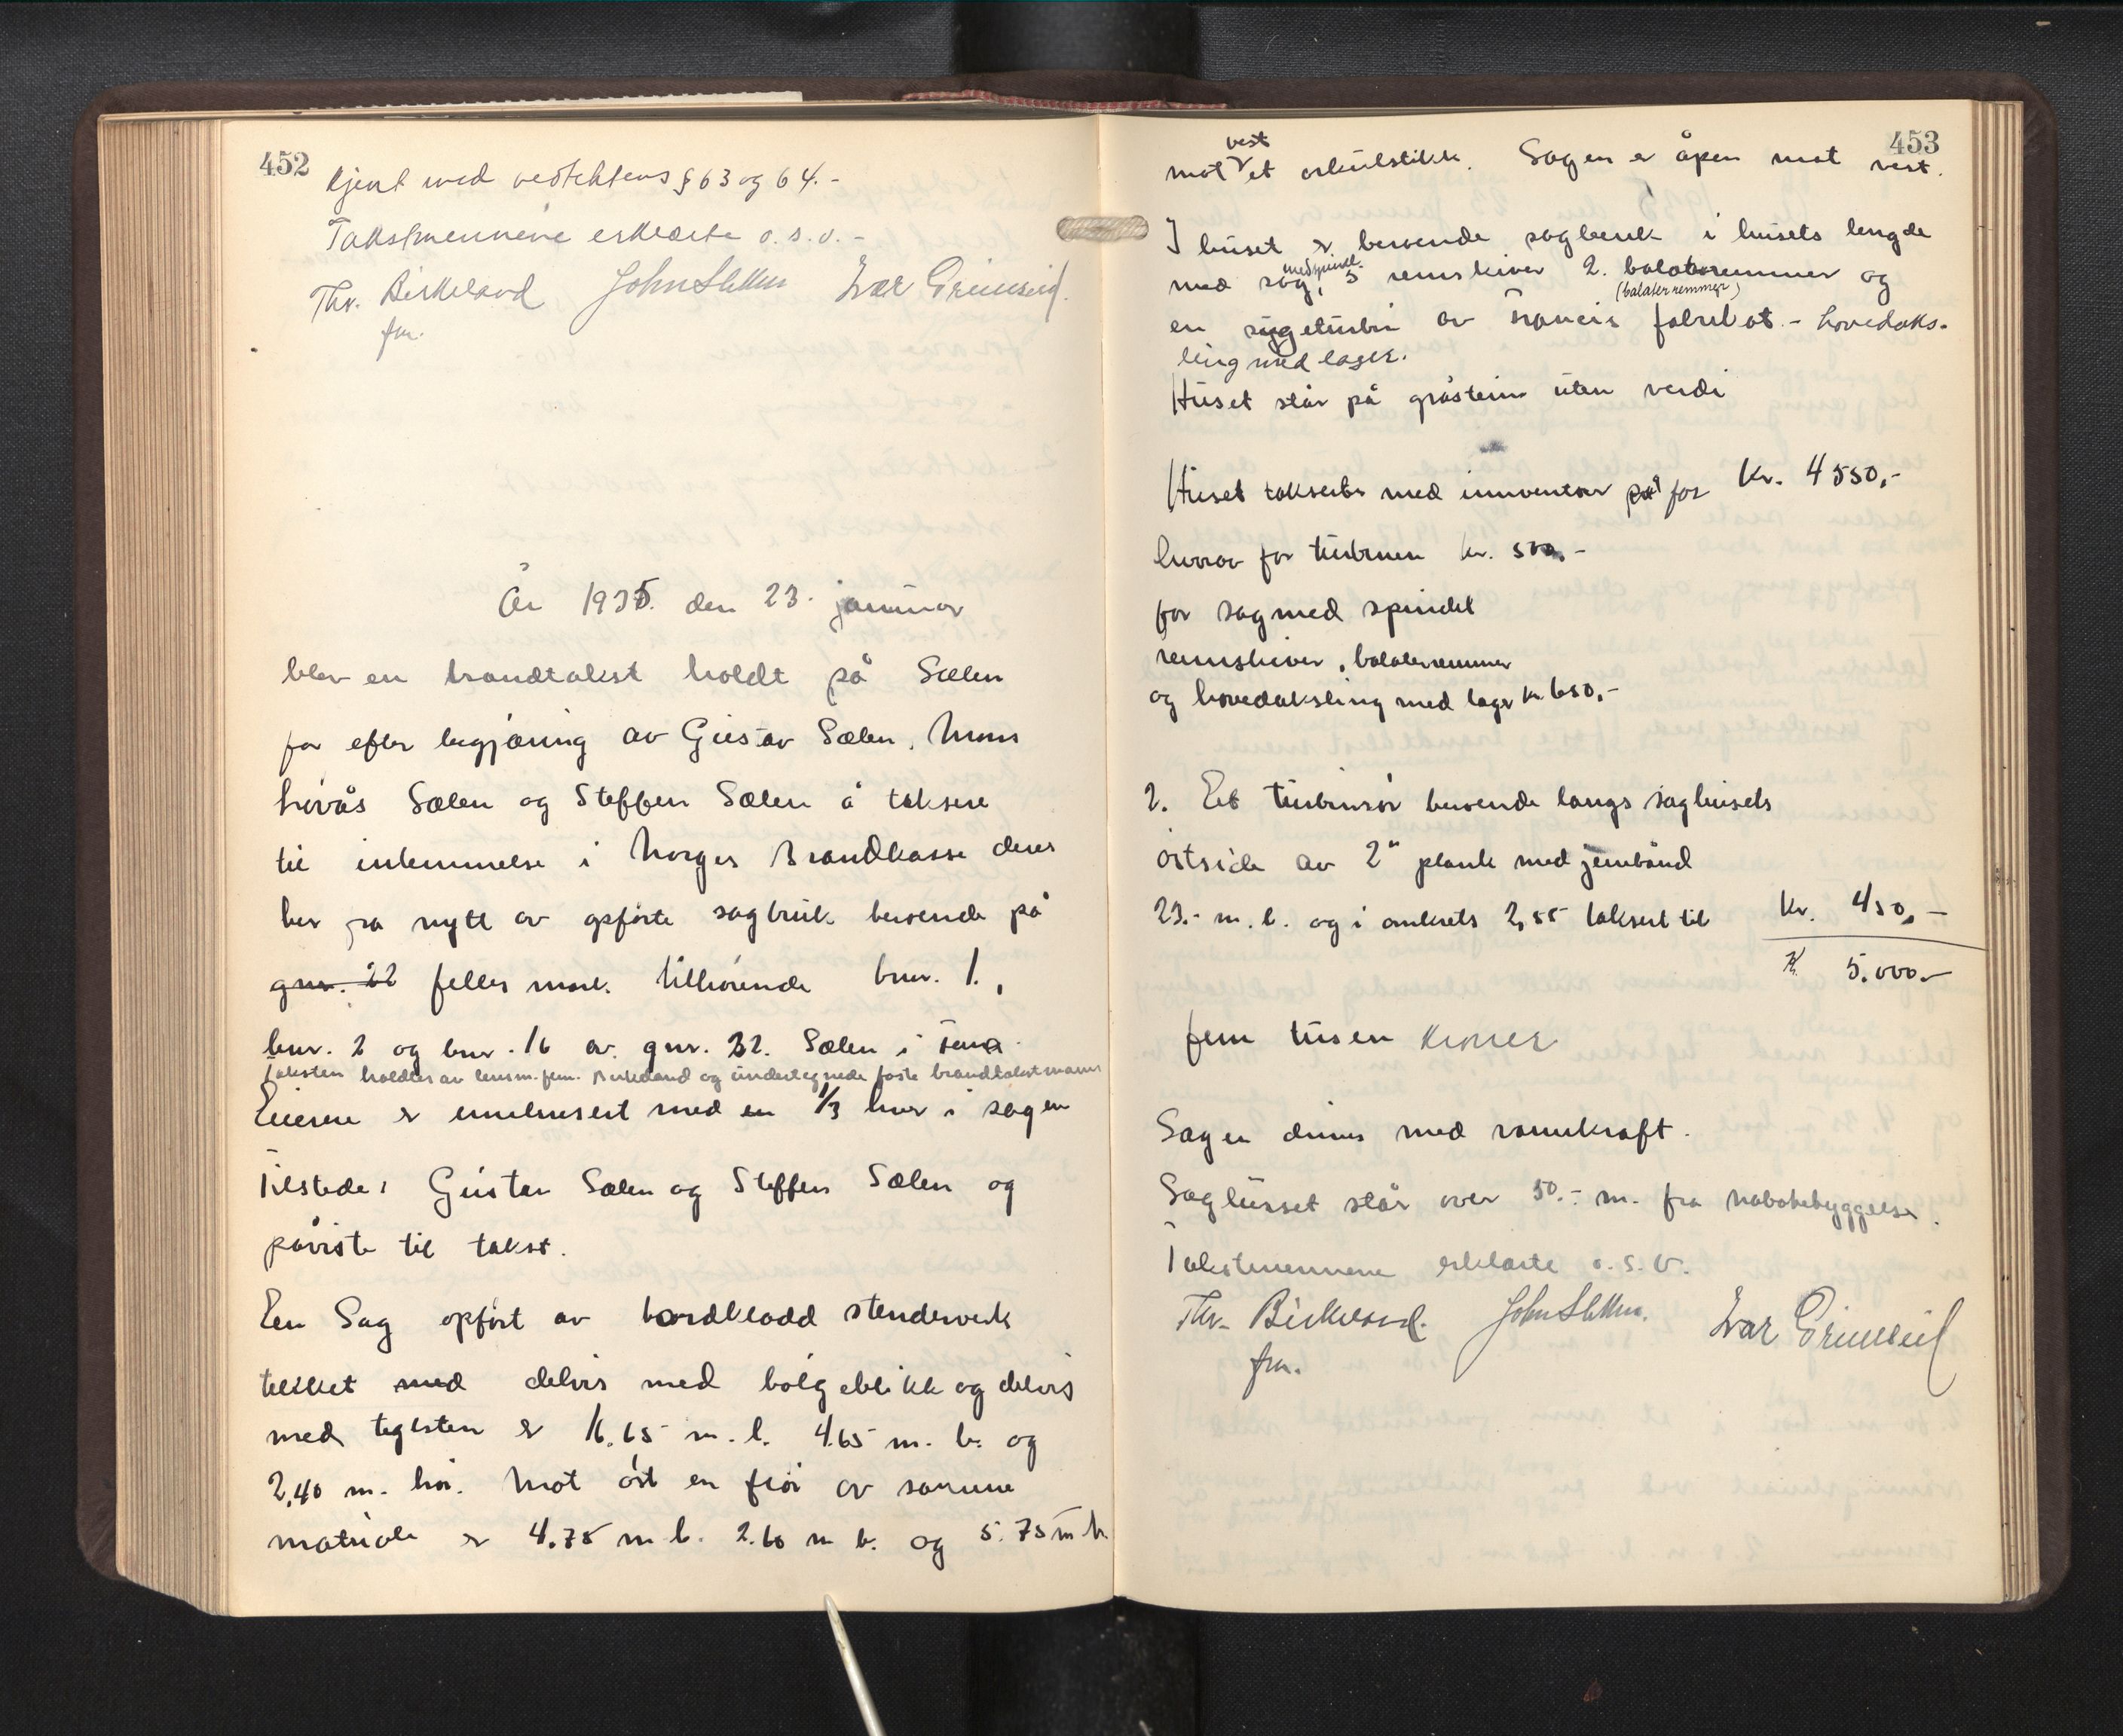 452
kjent med vedtektens § 63 og 64.-
Takstmennene erklærte o.s.v.-
Thv. Birkeland
fm.
År 1935. den 23. januar
blev en brandtakst holdt på Sælen
for efter begjæring av Gustav Sælen, Mons
Sælen og Steffen Sælen å taksere
til innlemmelse i Norges Brandkasse deres
her fra nytt av opførte sagbruk beroende på
gnr. 22 felles mark. tilhørende bnr. 1.,
bnr. 2 og bnr. 16 av gnr. 22. Sælen i
Taksten holdtes av lensm. fm. Birkeland og undertegnede faste brandtakstmænn
Eierne er med en 1/3 hver i sagen
Tilstede: Gustav Sælen og Steffen Sælen og
påviste til takst.
En Sag opført av bordkledd stenderverk
tekket med delvis med bølgeblikk og delvis
med teglsten er 16.65 m. l. 4.65 m. b. og
2,40 m. høi. Mot øst en fløi av samme
matriale er 4.75 m l. 2.60 m b. og 5.75 m h
453
vest
mot et Sagen er åpen mot vest.
I huset er beroende sagbenk i husets lengde
med spindel
med sag, 5 remskiver 2. balataremmer og
(balataremmer)
en sugeturbin av Francis fabrikat - hovedaks-
ling med lager.
Huset står på gråstein uten verdi
Huset takseres med innventar på for Kr. 4550,-
hvorav for turbinen kr. 500.-
for sag med spindel
remskiver, balataremmer
og hovedaksling med lager kr 650,-
2. Et turbinrør beroende langs saghusets
østside av 2" plank med jernbånd
23.- m. l. og i omkrets 2,55 taksert til Kr. 450,-
Kr 5.000.-
fem tusen kroner
Sagen drives med vannkraft.
Saghuset står over 50.- m. fra nabobebyggelse.
Takstmennene erklærte o.s.v.
Thv. Birkeland.
fm.